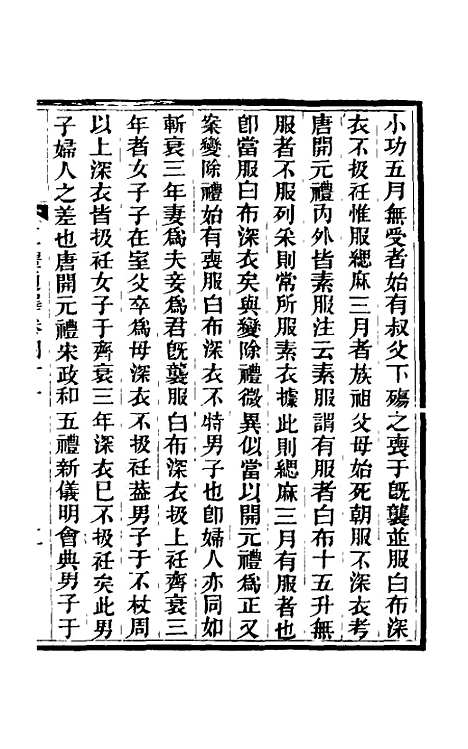 小功五月無受者始有叔父下殤之喪于旣襲並服白布深
衣不扱衽惟服緦麻三月者族祖父母始死朝服不深衣考
唐開元禮內外皆素服注云素服謂有服者白布十五升無
服者不服列采則常所服素衣據此則緦麻三月有服者也
卽當服白布深衣矣與變除禮微異似當以開元禮爲正又
案變除禮始有喪服白布深衣不特男子也卽婦人亦同如
斬衰三年妻爲夫妾爲君旣襲服白布深衣扱上衽齊衰三
年者女子子在室父卒爲母深衣不扱衽葢男子于不杖周
以上深衣皆扱衽女子于齊衰三年深衣巳不扱衽矣此男
子婦人之差也唐開元禮宋政和五禮新儀明會典男子于